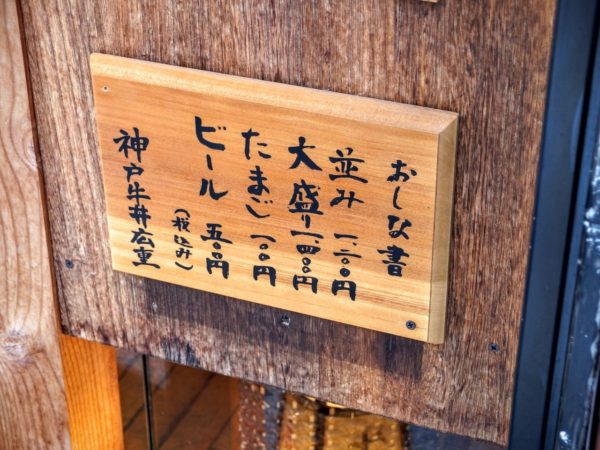 おしな書
並み 一、二〇〇円
大盛り 一、四〇〇円
たまご 一〇〇円
ビール 五〇〇円
（税込み）
神戸牛丼広重